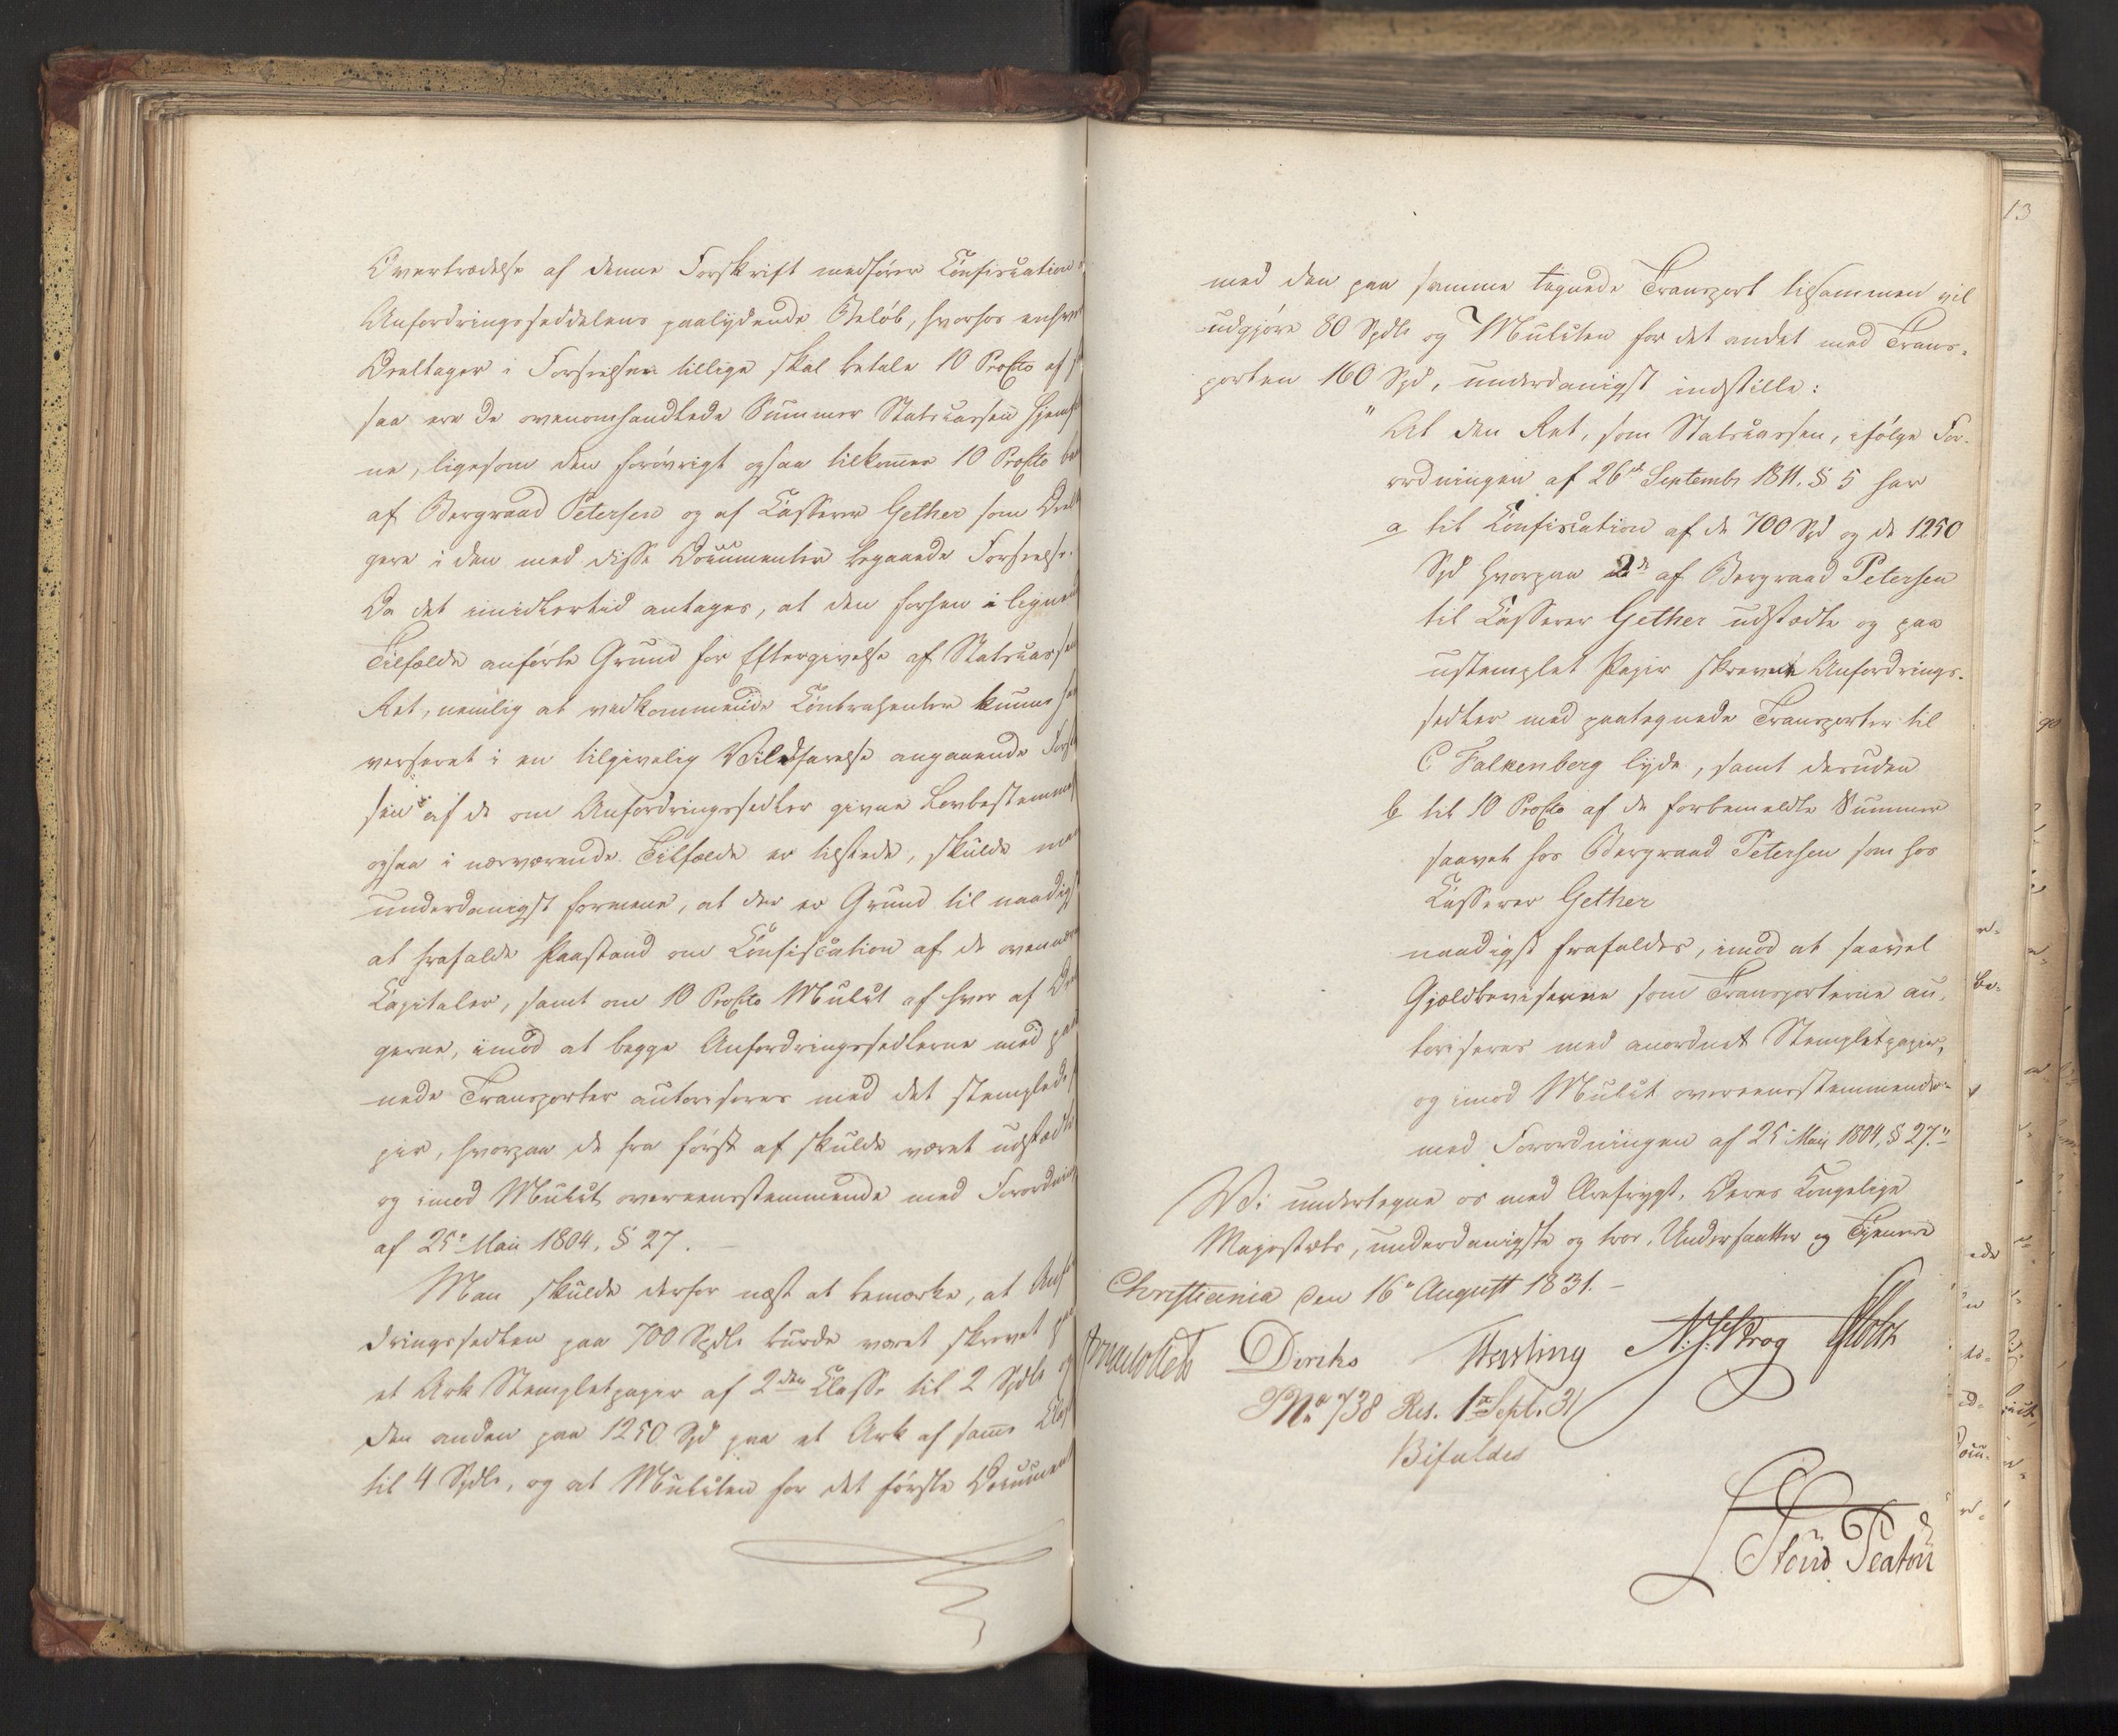 Overtrædelse af denne Forskrift medfører Confiscation
Anfordringsseddelens paalydende Beløb, hvorhos enhver
Deeltager i Forseelsen tillige skal betale 10 ProCto af
saa ere de ovenomhandlede Summer Statscassen hjemfald
ne, ligesom den forøvrigt ogsaa tilkommer 10 ProCto
af Bergraad Petersen og af Casserer Gether som Deel
gere i den med disse Documenter begaaede Forseelse.
Da det imidlertid antages, at den forhen i lignende
Tilfælde anførte Grund for Eftergivelse af Statscassens
Ret, nemlig at vedkommende Contrahenter kunne
verseret i en tilgivelig Vildfarelse angaaende
sen af de om Anfordringssedler givne Lovbestemmel
ogsaa i nærværende Tilfælde er tilstede, skulde man
underdanigst formene, at der er Grund til naadigst
at frafalde Paastand om Confiscation af de ovennævn
Capitaler, samt om 10 ProCto Mulct af hver af
gerne, imod at begge Anfordringssedlerne med
nede Transporter autoriseres med det stemplede
pir, hvorpaa de fra først af skulde været udstædte
og imod Mulct overeensstemmende med Forordning
af 25de Maii 1804, § 27.
Man skulde derfor næst at bemærke, at Anfo
dringssedlen paa 700 Spdlr burde været skrevet
et Ark Stempletpapir af 2den Classe til 2 Spdlr og
den anden paa 1250 Spd paa et Ark af samme
til 4 Spdlr, og at Mulcten for det første Document
med den paa samme tegnede Transport tilsammen vil
udgjøre 80 Spdlr og Mulcten for det andet med Trans-
porten 160 Spd, underdanigst indstille:
"At den Ret, som Statscassen, ifølge For-
ordningen af 26de Septembr 1811. § 5 har
a til Confiscation af de 700 Spd og de 1250
Spd hvorpaa 2de af Bergraad Petersen
til Casserer Gether udstædte og paa
ustemplet Papir skrevne Anfordrings-
sedler med paategnede Transporter til
C Falkenberg lyde, samt desuden
b til 10 ProCto af de forbemeldte Summer
saavel hos Bergraad Petersen som hos
Casserer Gether
naadigst frafaldes, imod at saavel
Gjældbeviserne som Transporterne au-
toriseres med anordnet Stempletpapir,
og imod Mulct overeensstemmende
med Forordningen af 25 Maii 1804, § 27."
Vi undertegne os med Ærefrygt, Deres Kongelige
Majestæts, underdanigste og troe Undersaatter og Tjenere
Christiania den 16de August 1831.
Diriks N. J. Krog
PNo 738 Res. 1ste Sept. 31
Bifaldes
13